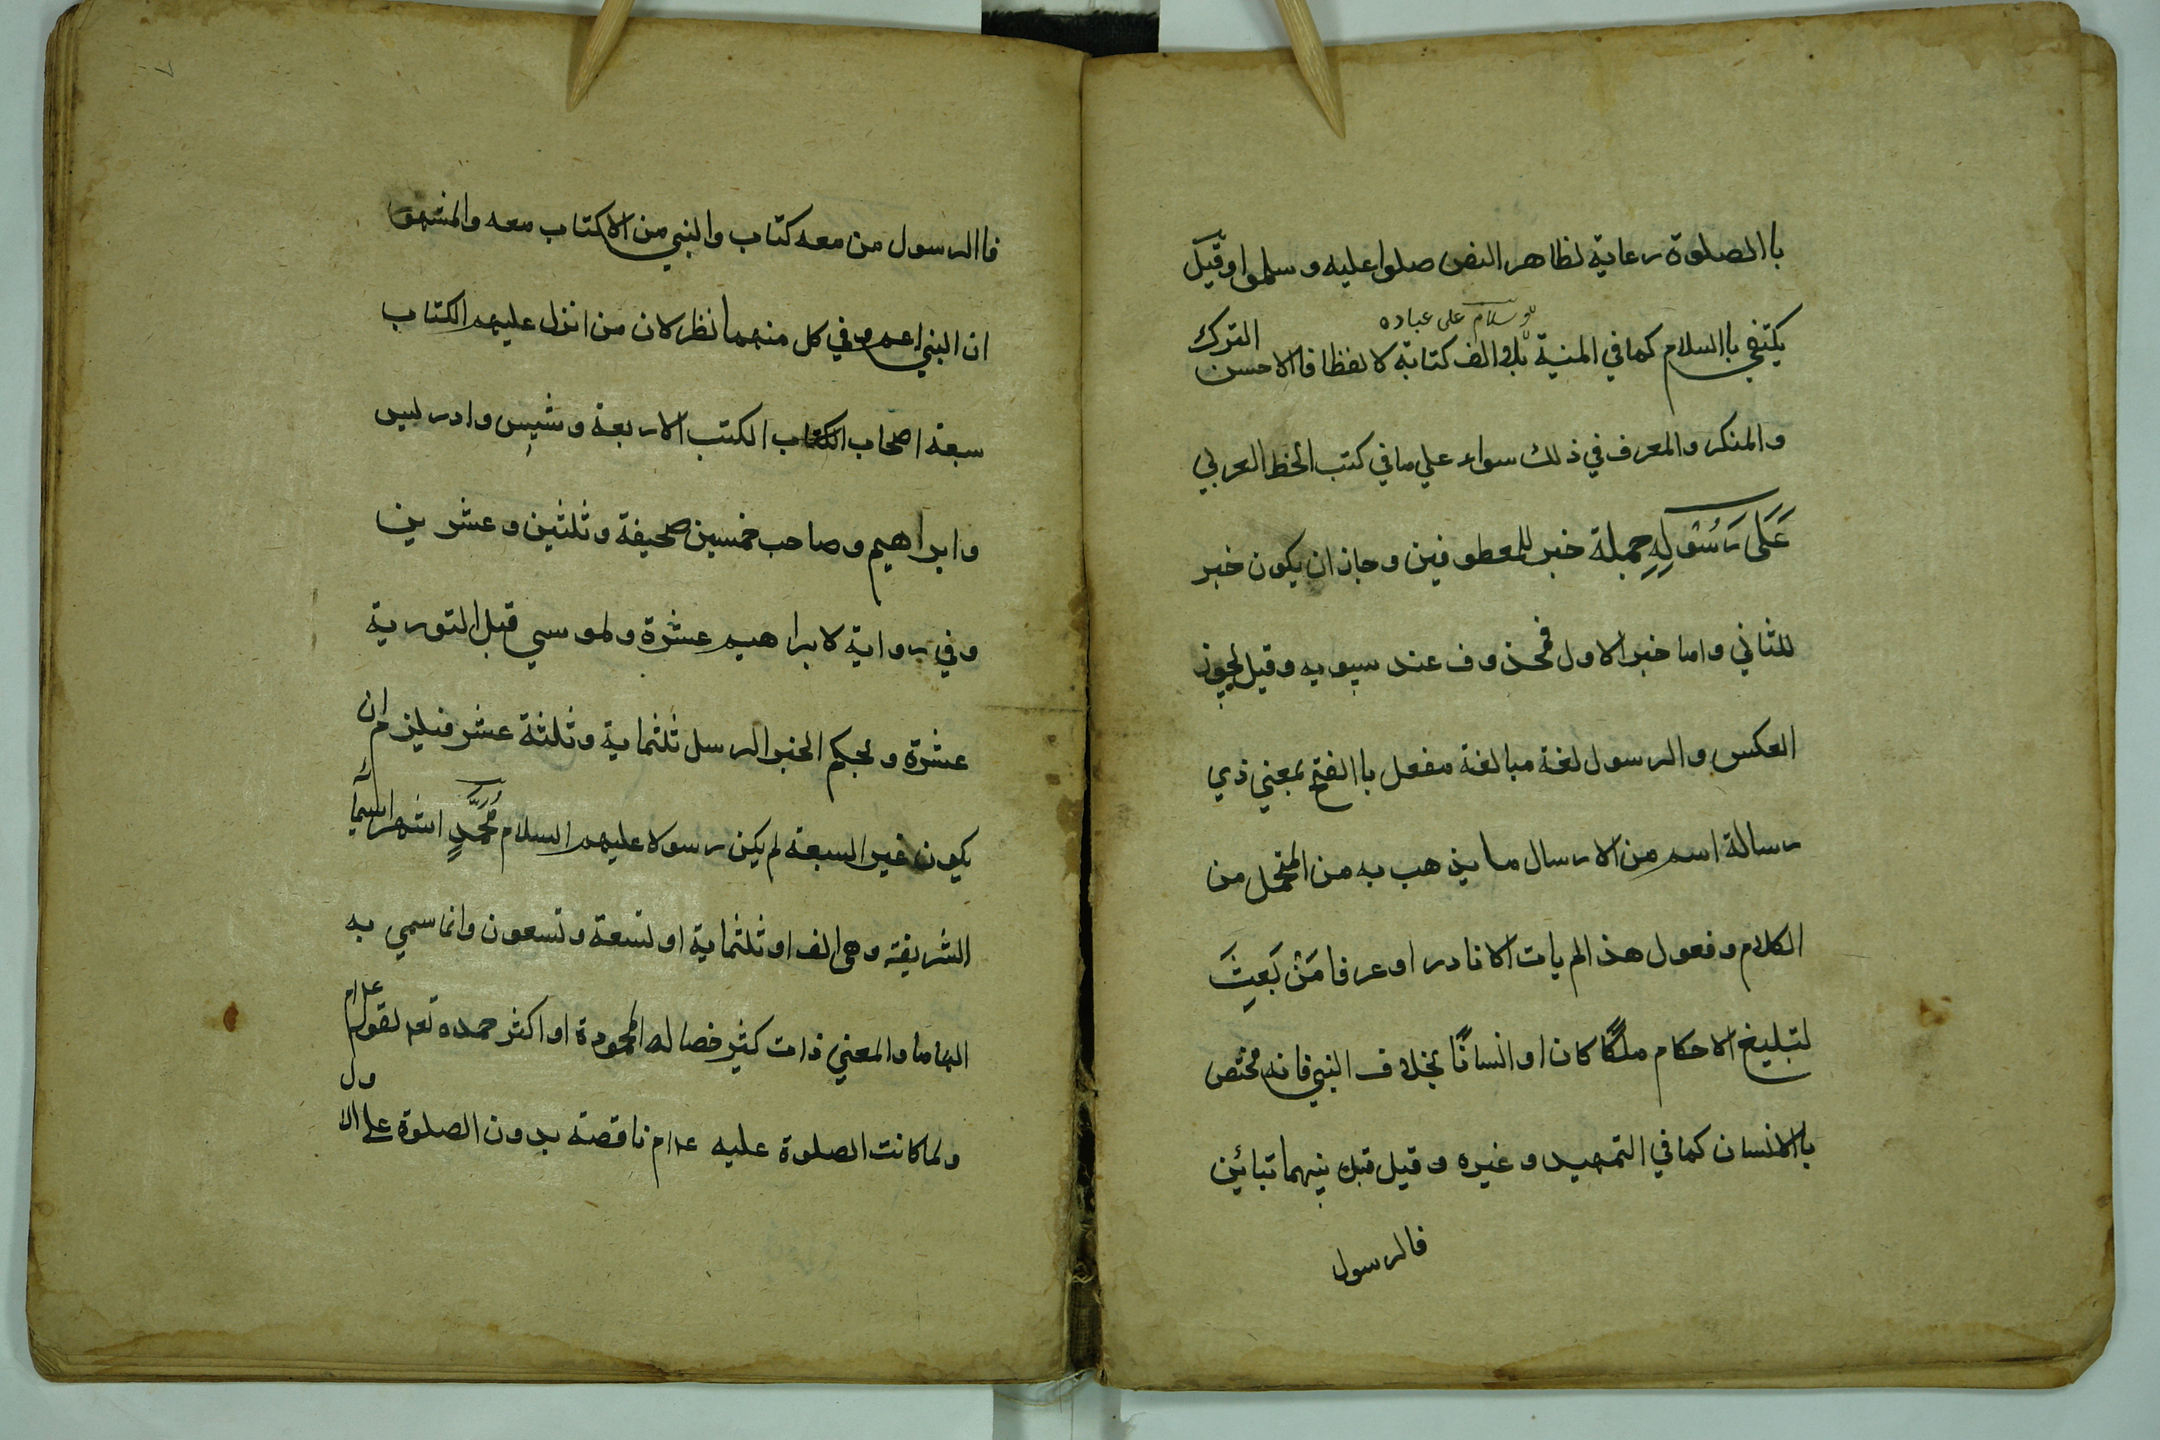 باالصلوة رعاية لظاهر النص صلوا عليه وسلموا وقيل
وسلام على عباده
يكتفي باالسلام كما في المنية بلا الف كتابة لا لفظا فاالاحسن الترك
والمنكر والمعرف في ذلك سواء علي ما في كتب الخط العربي
عَلَى رَسُوْلِهِ جملة خبر للمعطوفين وجاز ان يكون خبر
للثاني واما خبر الاول فمحذوف عند سيبويه وقيل يجوز
العكس والرسول لغة مبالغة مفعل باالفتح بمعني ذي
رسالة اسم من الارسال ما يذهب به من المتحمل من
الكلام وفعول هذا لم يات الا نادرا وعرفا مَنْ بَعِثَ
لتبليغ الاحكام ملكًا كان او انسانًا بخلاف النبي فانه مختص
باالانسان كما في التمهيد وغيره وقيل قبل بينهما تبائين
فالرسول
فاالرسول من معه كتاب والنبي من لاكتاب معه والمشهور
ان النبي اعم وفي كل منهما نظر لان من انزل عليهم الكتاب
سبعة اصحاب الكتب الاربعة وشيس وادريس
وابراهيم وصاحب خمسين صحيفة وثلثين وعشرين
وفي رواية لابراهيم عشرة ولموسي قبل التورية
عشرة وبحكم الخبر الرسل ثلثماية وثلثة عشر فيلزم ان
يكون غير السبعة لم يكن رسولا عليهم السلام مُحَمَّدٍ اشهر اسمائه
الشريفة وهي الف او ثلثماية او تسعة وتسعون وانما سمي به
الهاما والمعني ذات كثير خصاله المحمودة او اكثر حمده تعم لقوم
ولما كانت الصلوة عليه عـم ناقصة بدون الصلوة علي الا
ول